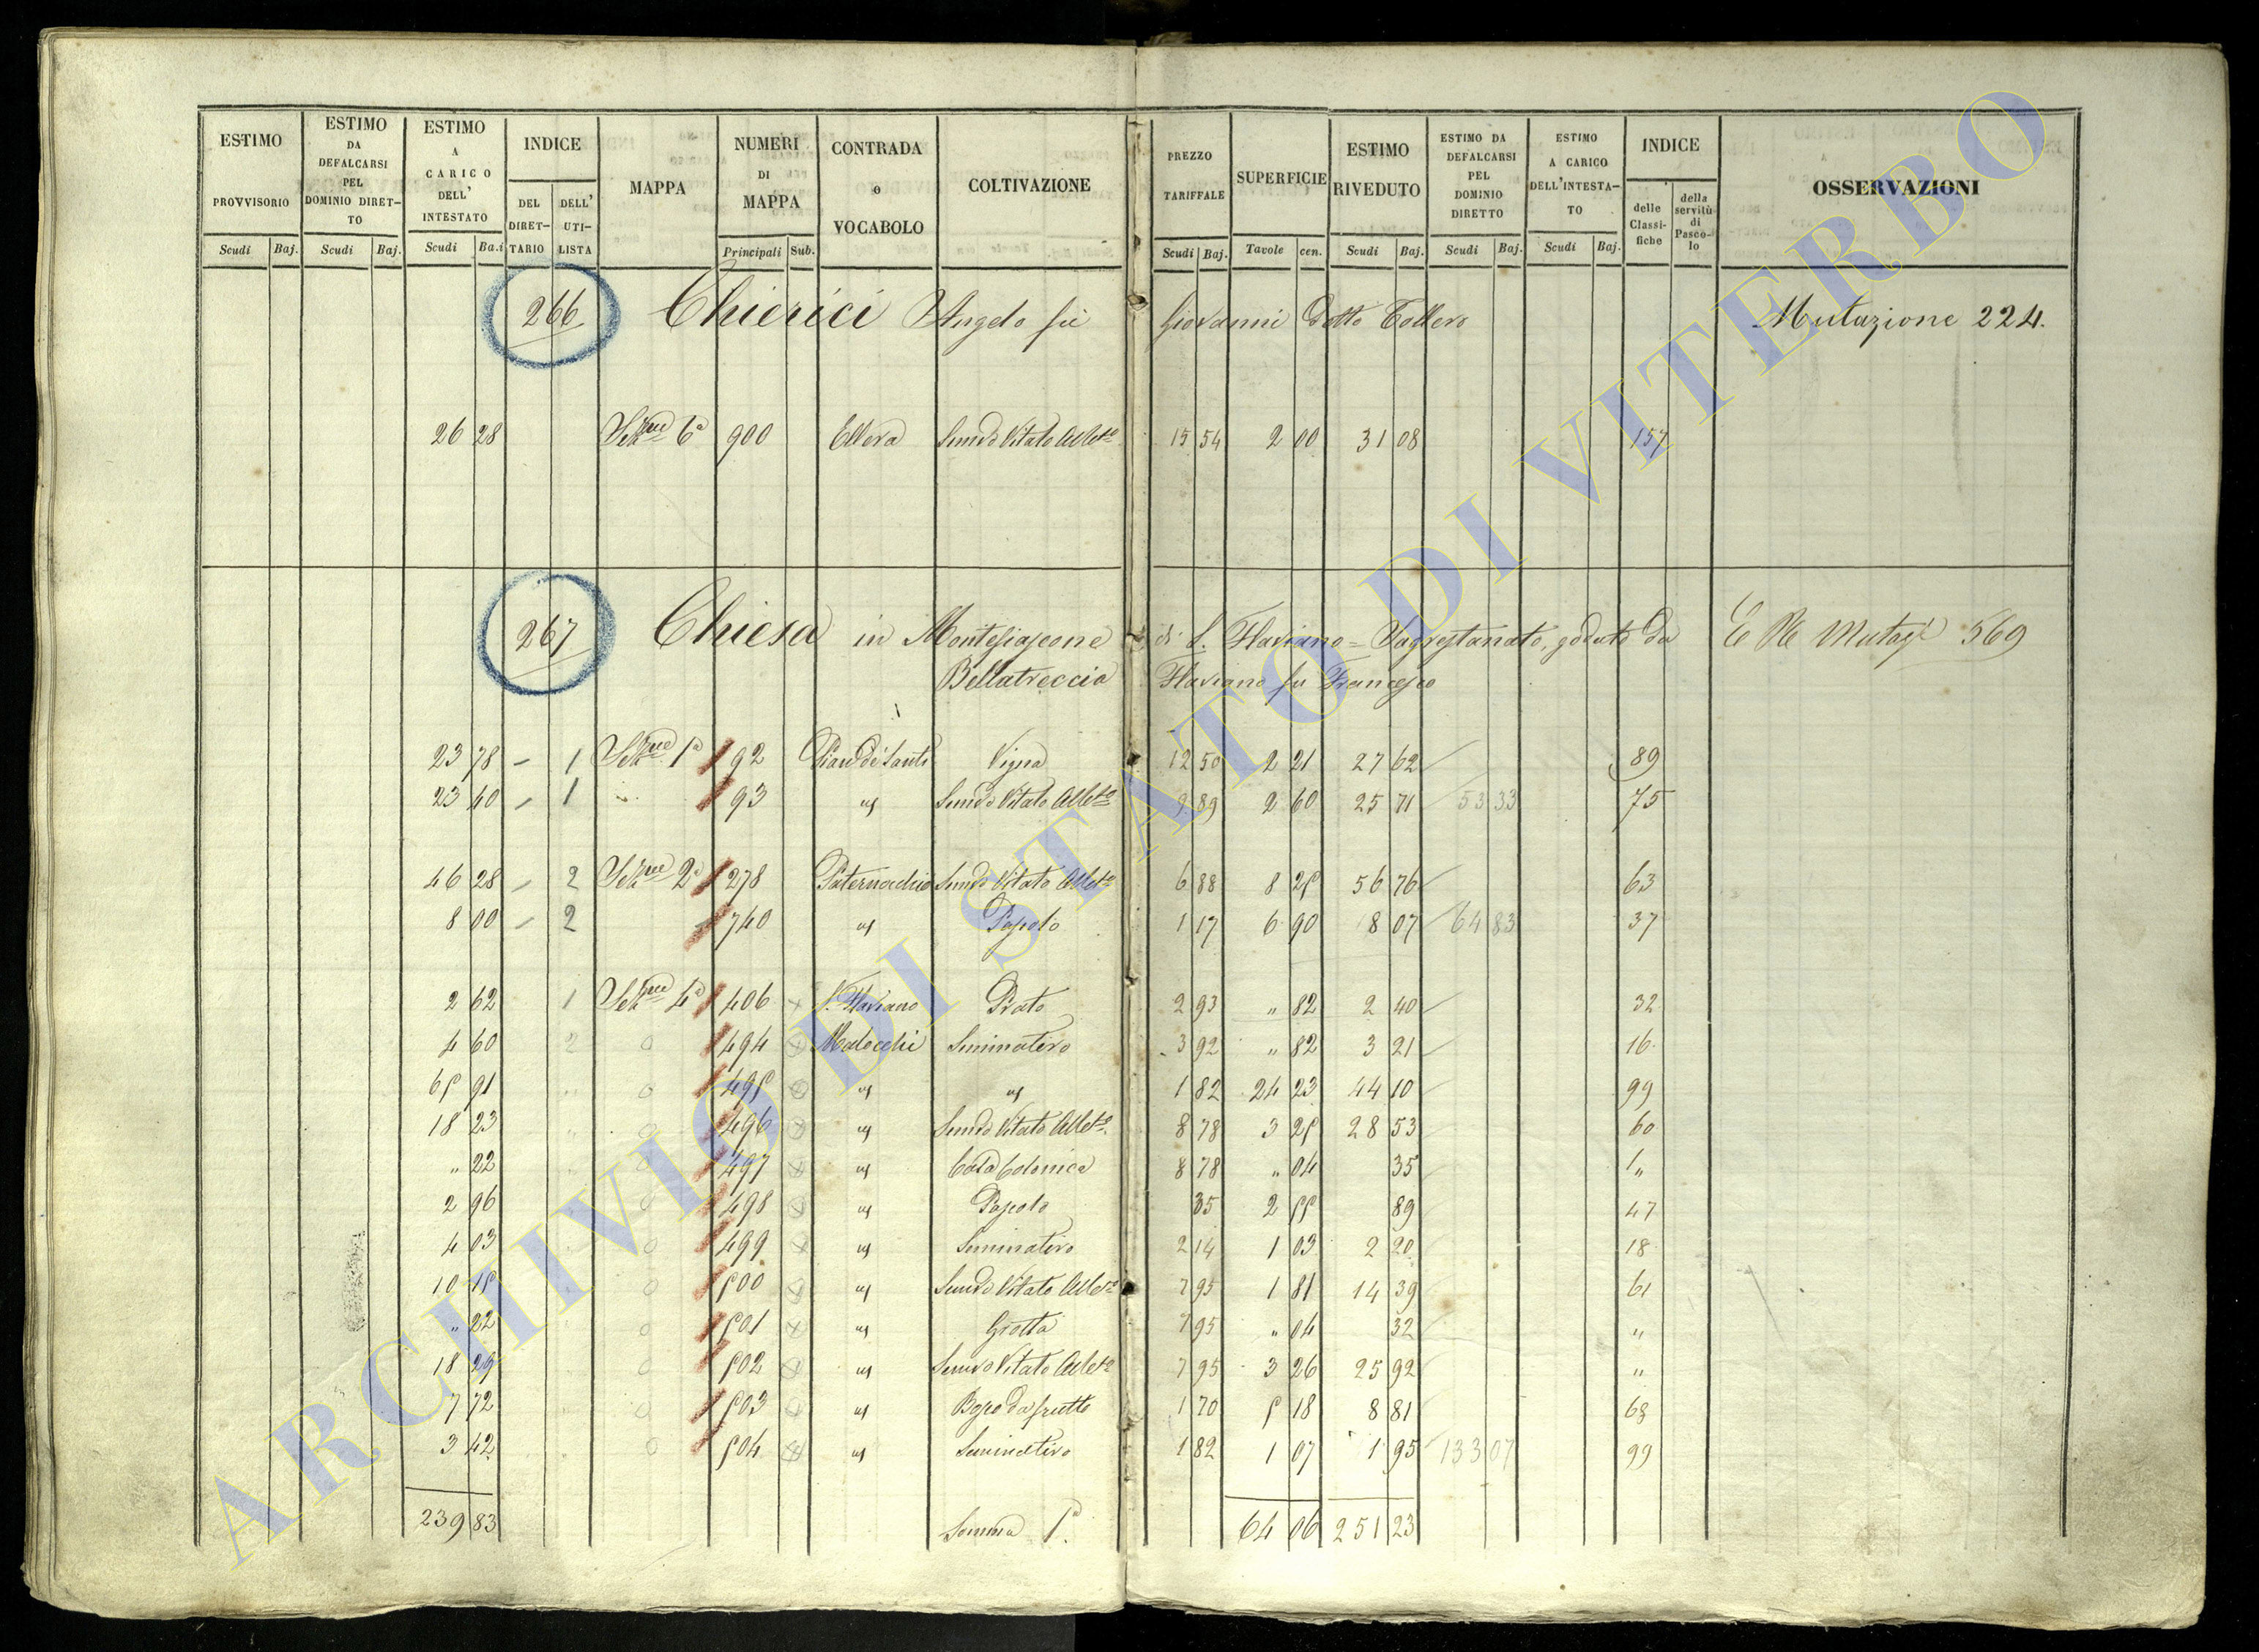 ESTIMO PROVVISORIO Scudi Baj. ESTIMO DA DEFALCARSI PEL DOMINIO DIRET-TO Scudi Baj. ESTIMO A CARICO DELL' INTESTATO Scudi Ba.i INDICE DEL DIRET-TARIO DELL' UTI-LISTA MAPPA NUMERI DI MAPPA Principali Sub. CONTRADA o VOCABOLO COLTIVAZIONE PREZZO TARIFFALE Scudi Baj. SUPERFICIE Tavole cen. ESTIMO RIVEDUTO Scudi Baj. ESTIMO DA DEFALCARSI PEL DOMINIO DIRETTO Scudi Baj. ESTIMO A CARICO DELL'INTESTA-TO Scudi Baj. INDICE delle Classi-fiche della servitù di Pasco-lo OSSERVAZIONI
266 Chierici Angelo fu Giovanni detto Tollero Mutazione 224.
26 28 Sezne 6a 900 Ellera Semivo Vitato Albto 15 54 2 00 31 08 157
267 Chiesa in Montefiascone di S. Flaviano = Sagrestanato, goduto da E R Mutaze 569
Bellatreccia Flaviano fu Francesco
23 78 - 1 Sezne 1a 92 Pian de Santi Vigna 12 50 2 21 27 62 89
23 40 - 1 93 " Semivo Vitato Albto 9 89 2 60 25 71 53 33 75
46 28 - 2 Sezne 2a 278 Paternocchio Semivo Vitato Albto 6 88 8 25 56 76 63
8 00 - 2 740 " Pascolo 1 17 6 90 8 07 64 83 37
2 62 1 Sezne 4a 406 S. Flaviano Prato 2 93 " 82 2 40 32
4 60 2 0 494 Malocchi Seminativo 3 92 " 82 3 21 16
65 91 " 0 495 " " 1 82 24 23 44 10 99
18 23 " 0 496 " Semivo Vitato Albto 8 78 3 25 28 53 60
" 22 " 0 497 " Casa Colonica 8 78 " 04 35 1"
2 96 " 0 498 " Pascolo 35 2 55 89 47
4 03 " 0 499 " Seminativo 2 14 1 03 2 20 18
10 15 " 0 500 " Semivo Vitato Albto 7 95 1 81 14 39 61
" 22 " 0 501 " Grotta 7 95 " 04 32 "
18 29 " 0 502 " Semivo Vitato Albto 7 95 3 26 25 92 "
7 72 " 0 503 " Bosco da frutto 1 70 5 18 8 81 68
3 42 " 0 504 " Seminativo 1 82 1 07 1 95 133 07 99
239 83 Somma 1a 64 06 251 23
ARCHIVIO DI STATO DI VITERBO